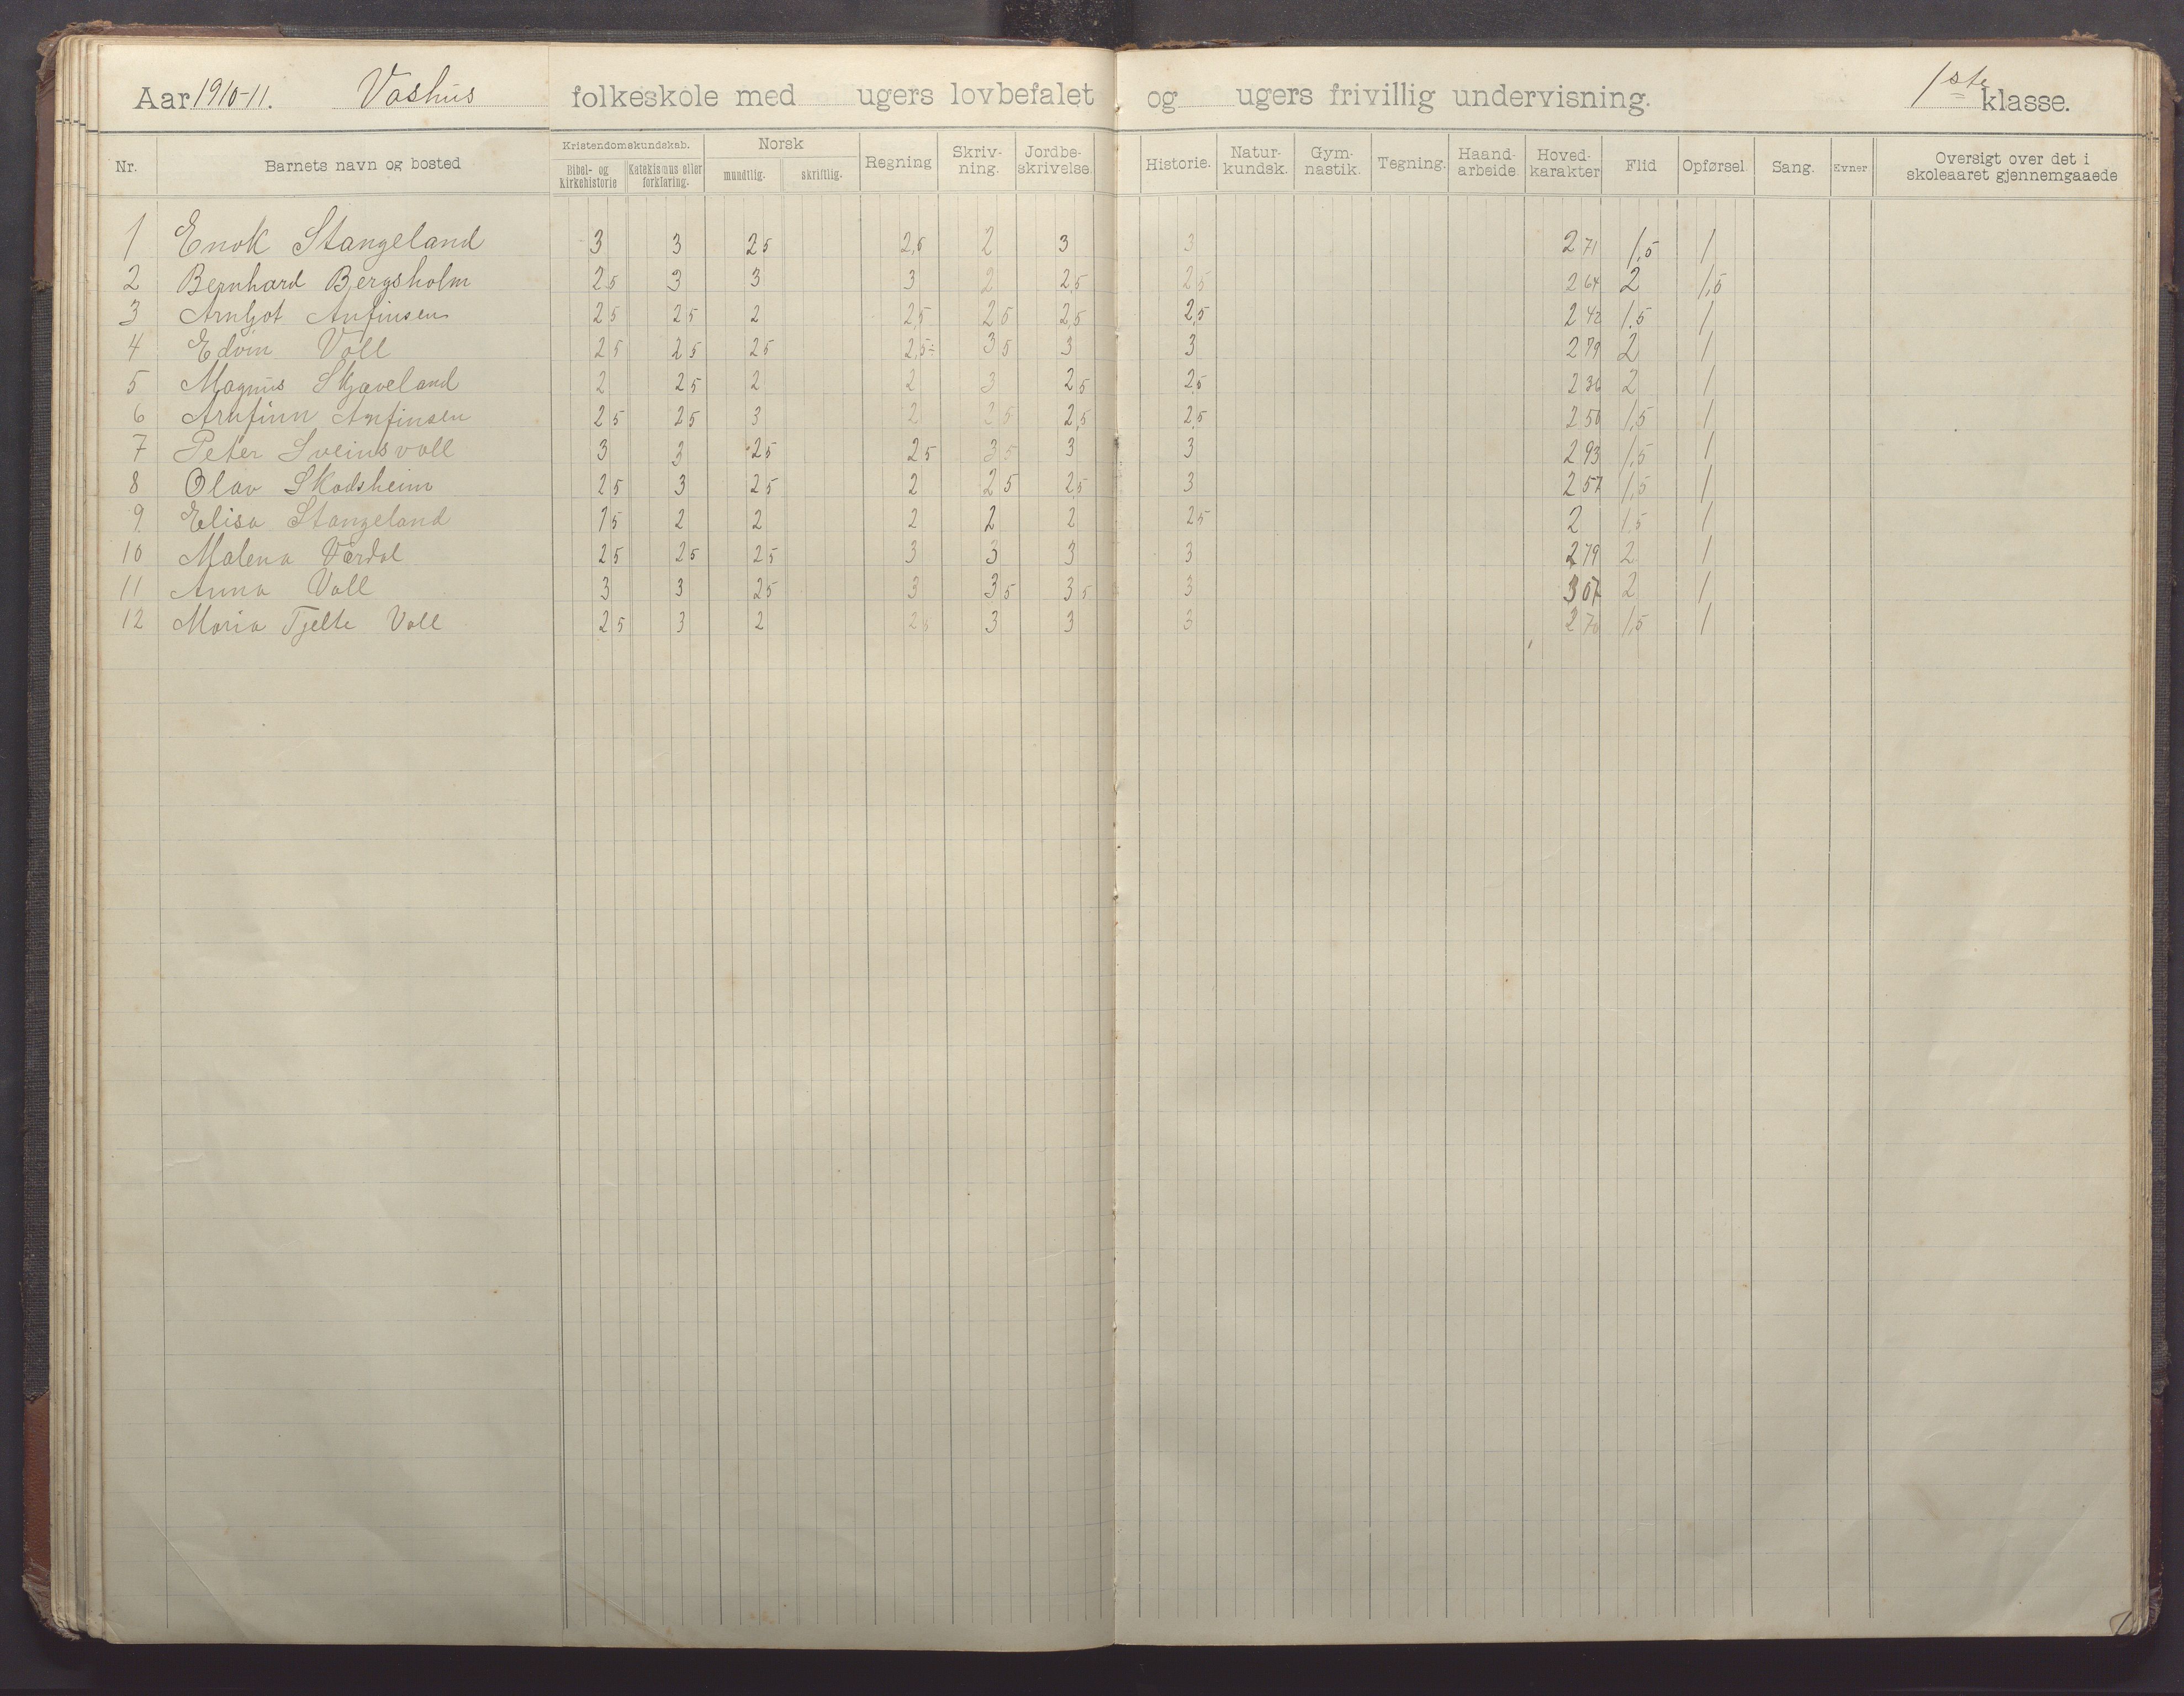 Aar 1910-11. Vashus folkeskole med ugers lovbefalet og ugers frivillig undervisning. 1ste klasse.
Nr. Barnets navn og bosted Kristendomskundskab. Bibel- og kirkehistorie Katekismus eller forklaring. Norsk mundtlig. skriftlig. Regning Skriv-ning. Jordbe-skrivelse. Historie. Natur-kundsk. Gym-nastik. Tegning. Haand-arbeide. Hoved-karakter Flid Opførsel. Sang. Evner Oversigt over det i skoleaaret gjennemgaaede
1 Enok Stangeland 3 3 25 2,5 2 3 3 2 71 1,5 1
2 Bernhard Bergsholm 25 3 3 3 2 2,5 25 2 64 2 1,5
3 Arnljot Anfinsen 25 25 2 2,5 25 2,5 2,5 2 42 1.5 1
4 Edvin Voll 25 25 25 2,5÷ 35 3 3 2 79 2 1
5 Magnus Skjæveland 2 25 2 2 3 25 2,5 2 36 2 1
6 Arnfinn Anfinsen 25 25 3 2 25 2,5 2,5 2 50 1,5 1
7 Peter Sveinsvoll 3 3 25 25 35 3 3 2 93 1,5 1
8 Olav Skadsheim 25 3 25 2 25 2,5 3 2 57 1,5 1
9 Elisa Stangeland 15 2 2 2 2 2 25 2 1,5 1
10 Malena Værdal 25 25 25 3 3 3 3 2 79 2 1
11 Anna Voll 3 3 25 3 35 35 3 3 07 2 1
12 Maria Tjelte Voll 25 3 2 25 3 3 3 2 70 1,5 1